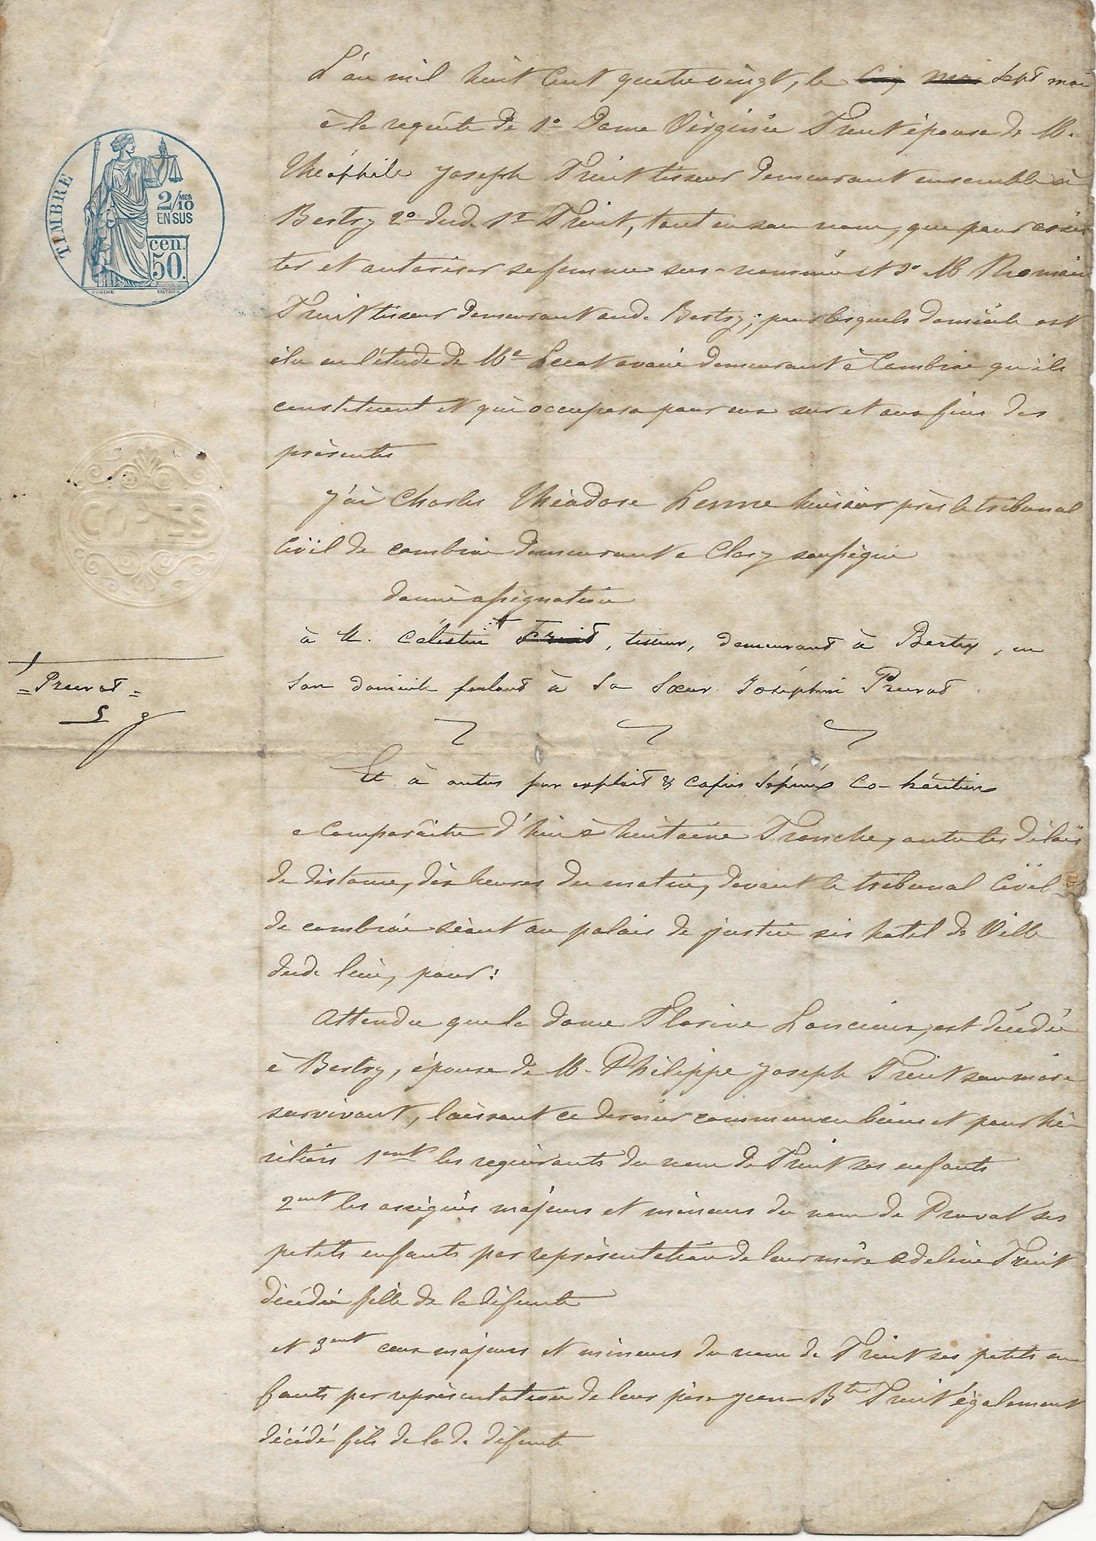 TIMBRE
2/10 MES
EN SUS
cen.
50.
COPIES
L'an mil huit cent quatre vingt, le cinq mai sept mai
à la requête de 1° Dame Virginie Fruit épouse de M.
Théophile Joseph Fruit tisseur demeurant ensemble à
Bertry 2° dud. Sr Fruit, tant en son nom, que pour assis
ter et autoriser sa femme sus-nommée et 3° M Romain
Fruit tisseur demeurant aud. Bertry; pour lesquels domicile est
élu en l'étude de Me avoué demeurant à Cambrai qu'ils
constituent et qui occupera pour eux sur et aux fins des
présentes
J'ai Charles Théodore huissier près le tribunal
Civil de Cambrai demeurant à Clary soussigné
donné assignation
à M. Célestin Fruit, tisseur, demeurant à Bertry, en
son domicile parlant à sa sœur Joséphine Pruvot
= Pruvot =
Et à autres par exploit & copies séparés co-héritiers
a Comparaître d'hui à huitaine franche, outre les délais
de distance, dix heures du matin, devant le tribunal Civil
de Cambrai séant au palais de justice sis hotel de Ville
dud. lieu, pour:
Attendu que la dame Florine est décédée
à Bertry, épouse de M. Philippe Joseph Fruit son mari
survivant, laissant ce dernier commun en biens et pour hé-
ritiers 1ent les requérants du nom de Fruit ses enfants
2ent les assignés majeurs et mineurs du nom de Pruvot ses
petits enfants par représentation de leur mère Adeline Fruit
décédée fille de la défunte
et 3ent ceux majeurs et mineurs du nom de Fruit ses petits en
fants par représentation de leur père Jean Bte Fruit également
décédé fils de la de défunte